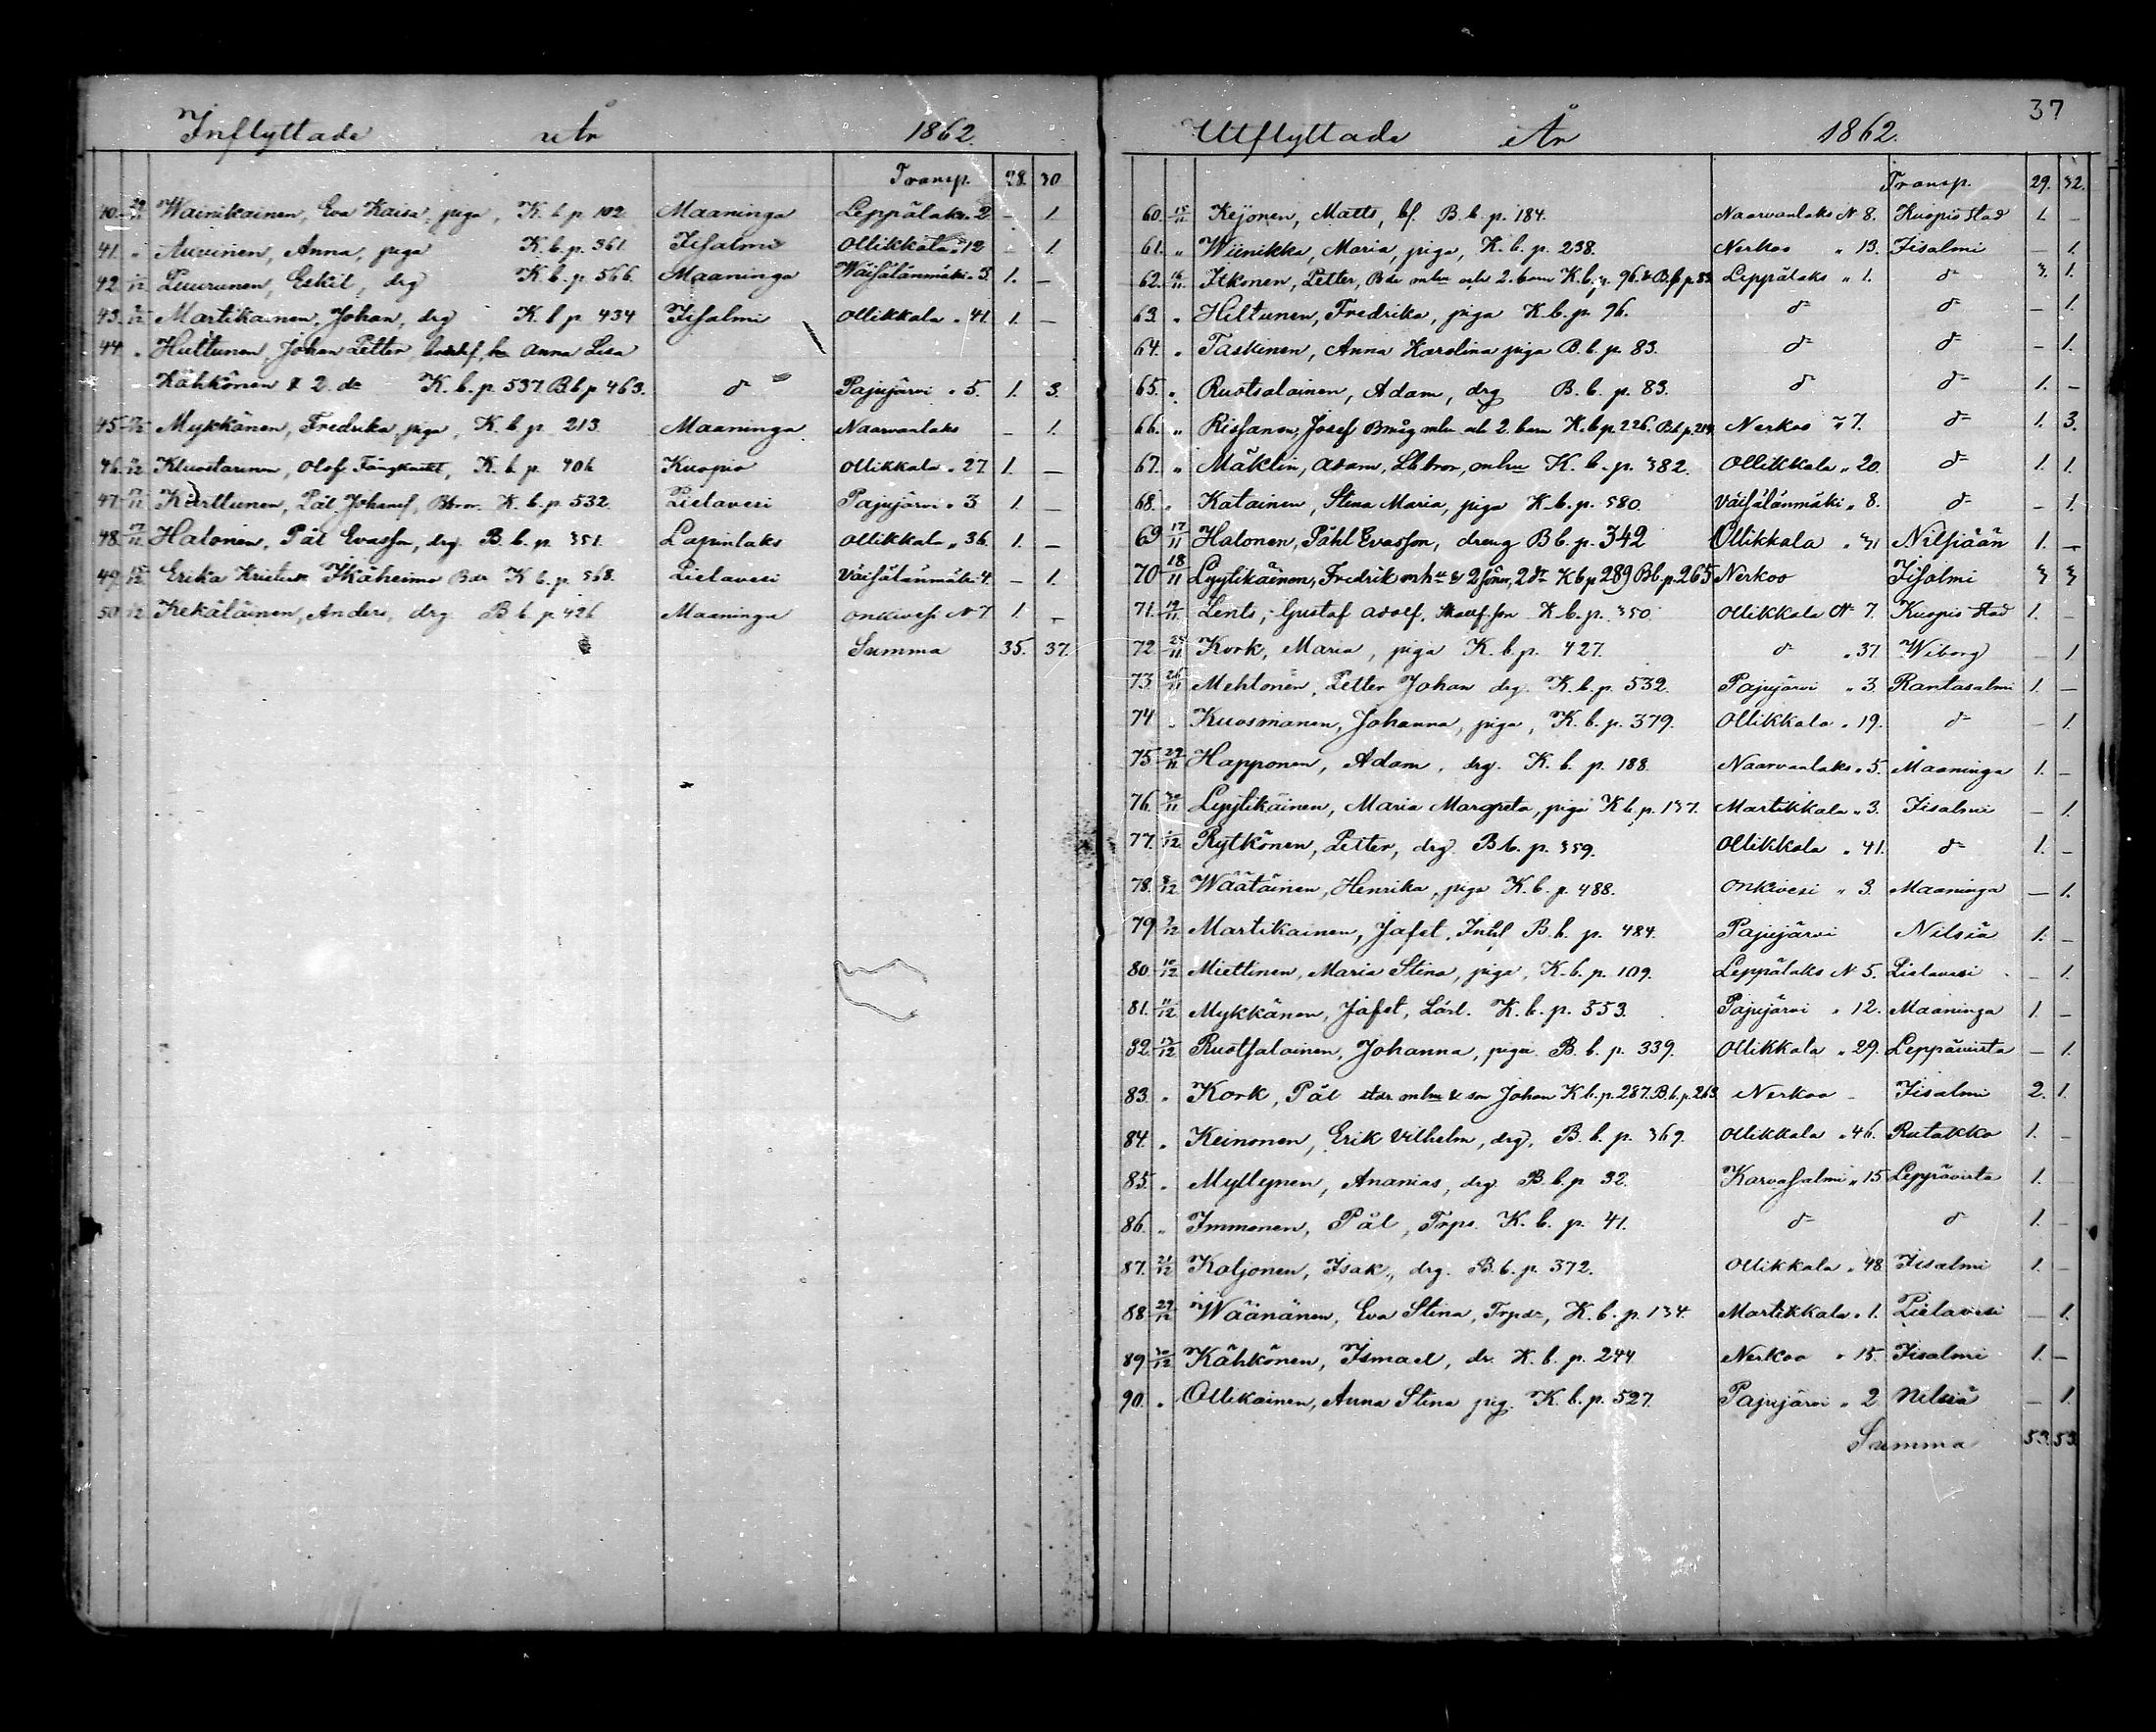 Inflyttade År 1862.
Transp. 28. 30
40. 29/11 Wainikainen, Eva Kaisa, piga, K. b. p. 102. Maaninga Leppälaks. 2. – 1.
41. " Auvinen, Anna, piga K. b. p. 361. Jisalmi Ollikkala " 12 – 1.
42. Puurunen, Eskil, drg K. b. p. 566. Maaninga Wäisälänmäki " 5. 1. –
43. Martikainen, Johan, drg K. b. p. 434 Jisalmi Ollikkala " 41. 1. –
44. " Hultunen, Johan Petter Anna Lisa
Kähkönen & 2. dr K. b. p. 537. B b p 463. d:o Pajujärvi " 5. 1. 3.
45. Mykkänen, Fredrika, piga, K. b. p. 213. Maaninga Naarvanlaks – 1.
46. Kluostarinen, Olof K. b. p. 406 Kuopio Ollikkala " 27. 1. –
47. Karttunen, Pål Johansf, K. b. p. 532. Pielavesi Pajujärvi " 3 1. –
48. Halonen, Pål Evasson, drg. B. b. p. 351. Lapinlaks Ollikkala " 36. 1. –
49. Erika Kristina Ikäheimo K. b. p. 568. Pielavesi Väisälänmäki 4. – 1.
50. Kekäläinen, Anders, drg B. b. p. 426 Maaninga Onkivesi N 7 1. –
Summa 35. 37.
37
Utflyttade År 1862.
Transp. 29. 32.
60. 15/11 Keijonen, Matts, bf. B. b. p. 184. Naarvanlaks N 8. Kuopio stad 1. –
61. " Wiinikka, Maria, piga, K. b. p. 238. Nerkoo " 13. Jisalmi – 1.
62. 16/11 Itkonen, Petter, Bde mhu och 2. barn K. b. p. 96. & B. b. p. 83. Leppälaks " 1. d:o 3. 1.
63. " Hiltunen, Fredrika, piga K. b. p. 96. d:o d:o – 1.
64. " Taskinen, Anna Karolina piga B. b. p. 83. d:o d:o – 1.
65. " Ruotsalainen, Adam, drg B. b. p. 83. d:o d:o 1. –
66. " Rissanen, Josef Bmåg mhu och 2. barn K. b. p. 226. B. b. p. 214. Nerkoo " 7. d:o 1. 3.
67. " Mäklin, Adam, mhu K. b. p. 382. Ollikkala " 20. d:o 1. 1.
68. " Katainen, Stina Maria, piga K. b. p. 580. Väisälänmäki " 8. d:o – 1.
69 17/11 Halonen, Påhl Evasson, dreng B b. p. 342 Ollikkala " 31 Nilsiään 1. –
70 18/11 Lyytikäinen, Fredrik m h:u & 2 söner, 2 d:r K b p 289 B b. p. 265 Nerkoo Jisalmi 3 3
71. 19/11 Lents, Gustaf Adolf, K. b. p. 350. Ollikkala N 7. Kuopio stad 1. –
72. 24/11 Kork, Maria, piga K. b. p. 427. d:o " 37. Wiborg – 1
73 26/11 Mehtonen, Petter Johan drg. K. b. p. 532. Pajujärvi " 3. Rantasalmi 1. –
74 " Kuosmanen, Johanna, piga, K. b. p. 379. Ollikkala " 19. d:o – 1.
75 29/11 Happonen, Adam, drg. K. b. p. 188. Naarvanlaks " 5. Maaninga 1. –
76. 30/11 Lyytikäinen, Maria Margreta, piga K. b. p. 137. Martikkala " 3. Jisalmi – 1.
77. 1/12 Rytkönen, Petter, drg. B. b. p. 359. Ollikkala " 41. d:o 1. –
78. 8/12 Wäätäinen, Henrika, piga K. b. p. 488. Onkivesi " 3. Maaninga – 1.
79 9/12 Martikainen, Jafet, Inhl B. b. p. 484. Pajujärvi Nilsiä 1. –
80. 10/12 Miettinen, Maria Stina, piga, K. b. p. 109. Leppälaks N 5. Pielavesi – 1.
81. 11/12 Mykkänen, Jafet, Lärl. K. b. p. 553. Pajujärvi " 12. Maaninga 1. –
82. 13/12 Ruotsalainen, Johanna, piga B. b. p. 339. Ollikkala " 29. Leppävirta – 1.
83. " Kork, Pål mhu & son Johan K b. p. 287. B. b. p. 263. Nerkoo – Jisalmi 2. 1.
84. " Keinonen, Erik Vilhelm, drg, B. b. p. 369. Ollikkala " 46. Rutakko 1. –
85. " Myllynen, Ananias, drg B. b. p 32. Karvasalmi " 15 Leppävirta 1. –
86. " Immonen, Pål, Trps. K. b. p. 41. d:o d:o 1. –
87. 21/12 Koljonen, Isak, drg. B. b. p. 372. Ollikkala " 48 Jisalmi 1. –
88. 29/12 Wäänänen, Eva Stina, Trpdr, K. b. p. 134. Martikkala " 1. Pielavesi – 1.
89. 30/12 Kähkönen, Ismael, dr. K. b. p. 244. Nerkoo " 15. Jisalmi 1. –
90. " Ollikainen, Anna Stina pig. K. b. p. 527. Pajujärvi " 2 Nilsiä – 1.
Summa 53. 53.